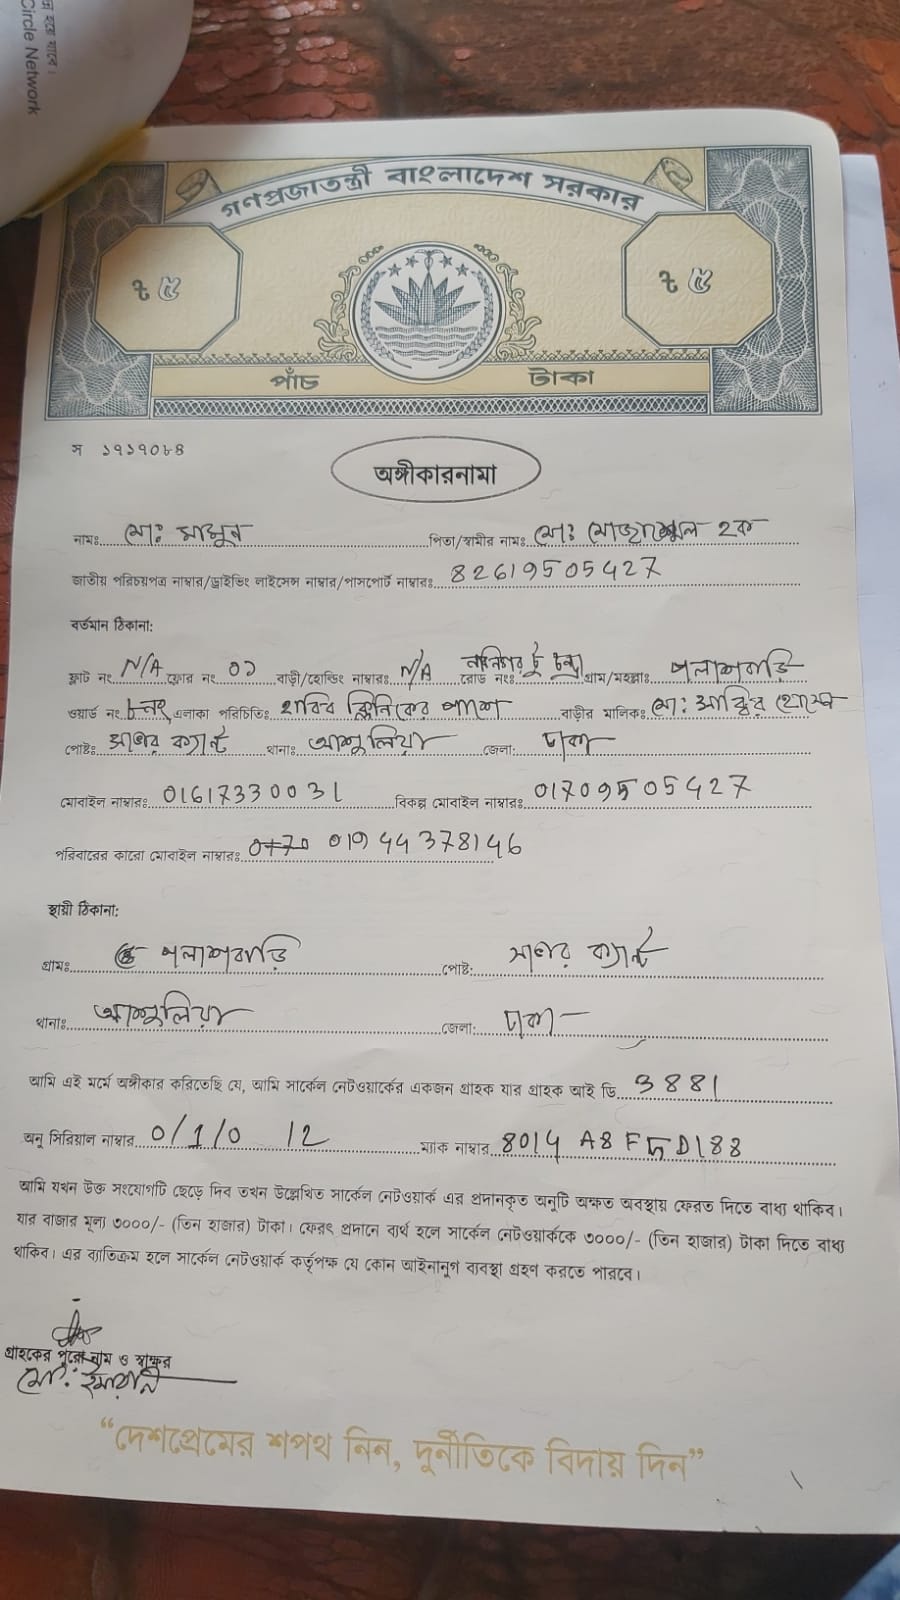 ন্ন হয়ে যাবে।
Circle Network
গণপ্রজাতন্ত্রী বাংলাদেশ সরকার
৳ ৫ ৳ ৫
পাঁচ টাকা
স ১৭১৭০৮৪
অঙ্গীকারনামা
নামঃ মোঃ মামুন পিতা/স্বামীর নামঃ মোঃ মোজাম্মেল হক
জাতীয় পরিচয়পত্র নাম্বার/ড্রাইভিং লাইসেন্স নাম্বার/পাসপোর্ট নাম্বারঃ 82619505427
বর্তমান ঠিকানা:
ফ্লাট নং N/A ফ্লোর নং ০১ বাড়ী/হোল্ডিং নাম্বারঃ N/A রোড নংঃ টু চন্দ্রা গ্রাম/মহল্লাঃ পলাশবাড়ি
ওয়ার্ড নং ৮নং এলাকা পরিচিতিঃ হাবিব ক্লিনিকের পাশে বাড়ীর মালিকঃ মোঃ
পোষ্টঃ সাভার ক্যান্ট থানাঃ আশুলিয়া জেলা: ঢাকা
মোবাইল নাম্বারঃ 01617330031 বিকল্প মোবাইল নাম্বারঃ 01709505427
পরিবারের কারো মোবাইল নাম্বারঃ 01944378146
স্থায়ী ঠিকানা:
গ্রামঃ পলাশবাড়ি পোষ্ট: সাভার ক্যান্ট
থানাঃ আশুলিয়া জেলা: ঢাকা
আমি এই মর্মে অঙ্গীকার করিতেছি যে, আমি সার্কেল নেটওয়ার্কের একজন গ্রাহক যার গ্রাহক আই ডি 3881
অনু সিরিয়াল নাম্বার 0/1/0 12 ম্যাক নাম্বার 8014 A8 F5 D188
আমি যখন উক্ত সংযোগটি ছেড়ে দিব তখন উল্লেখিত সার্কেল নেটওয়ার্ক এর প্রদানকৃত অনুটি অক্ষত অবস্থায় ফেরত দিতে বাধ্য থাকিব।
যার বাজার মূল্য ৩০০০/- (তিন হাজার) টাকা। ফেরৎ প্রদানে ব্যর্থ হলে সার্কেল নেটওয়ার্ককে ৩০০০/- (তিন হাজার) টাকা দিতে বাধ্য
থাকিব। এর ব্যাতিক্রম হলে সার্কেল নেটওয়ার্ক কর্তৃপক্ষ যে কোন আইনানুগ ব্যবস্থা গ্রহণ করতে পারবে।
গ্রাহকের পুরো নাম ও স্বাক্ষর
মোঃ ইমরান
“দেশপ্রেমের শপথ নিন, দুর্নীতিকে বিদায় দিন”